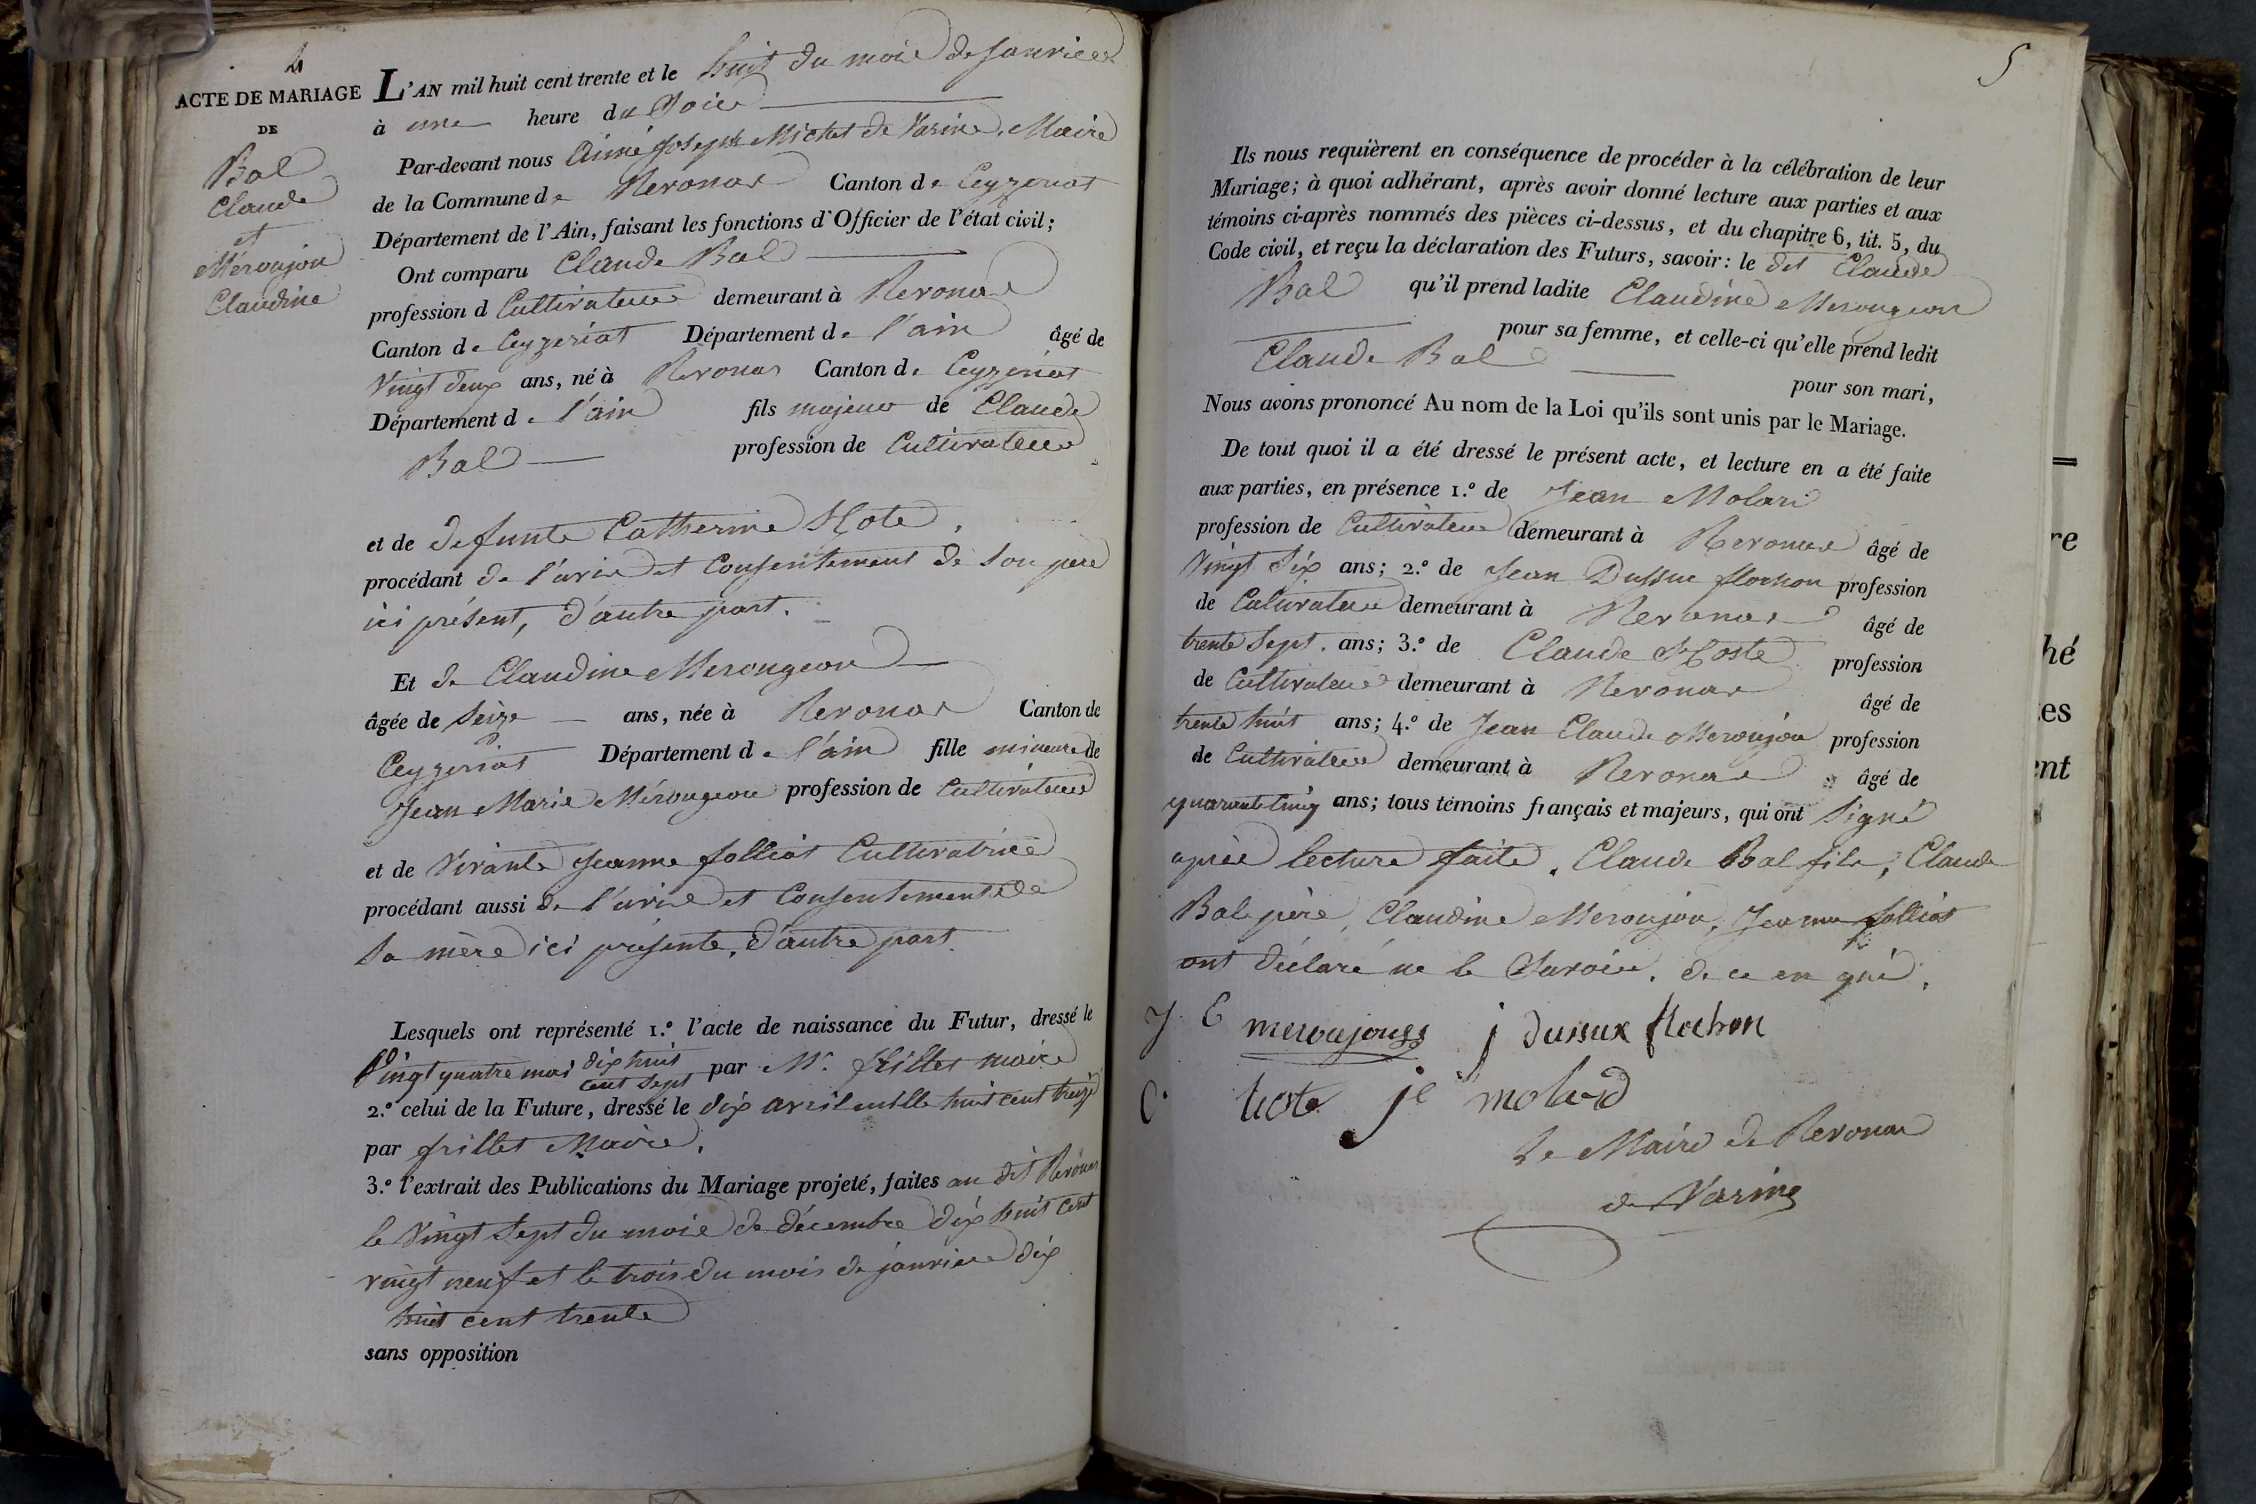 4
ACTE DE MARIAGE
DE
Bal
Claude
et
Méroujou
Claudine
L'AN mil huit cent trente et le huit du mois de Janvier
à une heure du Soir
Par-devant nous Aimé Joseph Michel de Varine, Maire
de la Commune de Revonas Canton de Ceyzeriat
Département de l'Ain, faisant les fonctions d'Officier de l'état civil;
Ont comparu Claude Bal
profession d Cultivateur demeurant à Revonas
Canton de Ceyzeriat Département de l'ain âgé de
Vingt deux ans, né à Revonas Canton de Ceyzeriat
Département de l'ain fils majeur de Claude
Bal profession de Cultivateur
et de defunte Catherine Hote,
procédant de l'avis et Consentement de son père
ici présent, d'autre part.
Et de Claudine Merougeon
âgée de Seize ans, née à Revonas Canton de
Ceyzeriat Département de l'ain fille mineure de
Jean Marie Mérougeon profession de Cultivateur
et de Vivante Jeanne folliat Cultivatrice
procédant aussi de l'avis et Consentement de
sa mère ici présente, d'autre part.
Lesquels ont représenté 1.º l'acte de naissance du Futur, dressé le
Vingt quatre mai dix huit cent sept par Mr. frillet maire
2.º celui de la Future, dressé le dix avril mille huit cent treize
par frillet Maire,
3.º l'extrait des Publications du Mariage projeté, faites au dit Revonas
le Vingt Sept du mois de décembre dix huit cent
vingt neuf et le trois du mois de janvier dix
huit cent trente
sans opposition
5
Ils nous requièrent en conséquence de procéder à la célébration de leur
Mariage; à quoi adhérant, après avoir donné lecture aux parties et aux
témoins ci-après nommés des pièces ci-dessus, et du chapitre 6, tit. 5, du
Code civil, et reçu la déclaration des Futurs, savoir: le dit Claude
Bal qu'il prend ladite Claudine Merougeon
pour sa femme, et celle-ci qu'elle prend ledit
Claude Bal pour son mari,
Nous avons prononcé Au nom de la Loi qu'ils sont unis par le Mariage.
De tout quoi il a été dressé le présent acte, et lecture en a été faite
aux parties, en présence 1.º de Jean Molard
profession de Cultivateur demeurant à Revonas âgé de
Vingt Six ans; 2.º de Jean Dussuc flochon profession
de Cultivateur demeurant à Revonas âgé de
trente Sept. ans; 3.º de Claude Hoste profession
de Cultivateur demeurant à Revonas âgé de
trente huit ans; 4.º de Jean Claude Meroujou profession
de Cultivateur demeurant à Revonas âgé de
quarante cinq ans; tous témoins français et majeurs, qui ont Signé
après lecture faite. Claude Bal fils, Claude
Bal père, Claudine Meroujou, Jeanne folliat
ont déclaré ne le Savoir. de ce en quis.
J C meroujoug j dussux flochon
C. hoste je molard
Le Maire de Revonas
de Varine